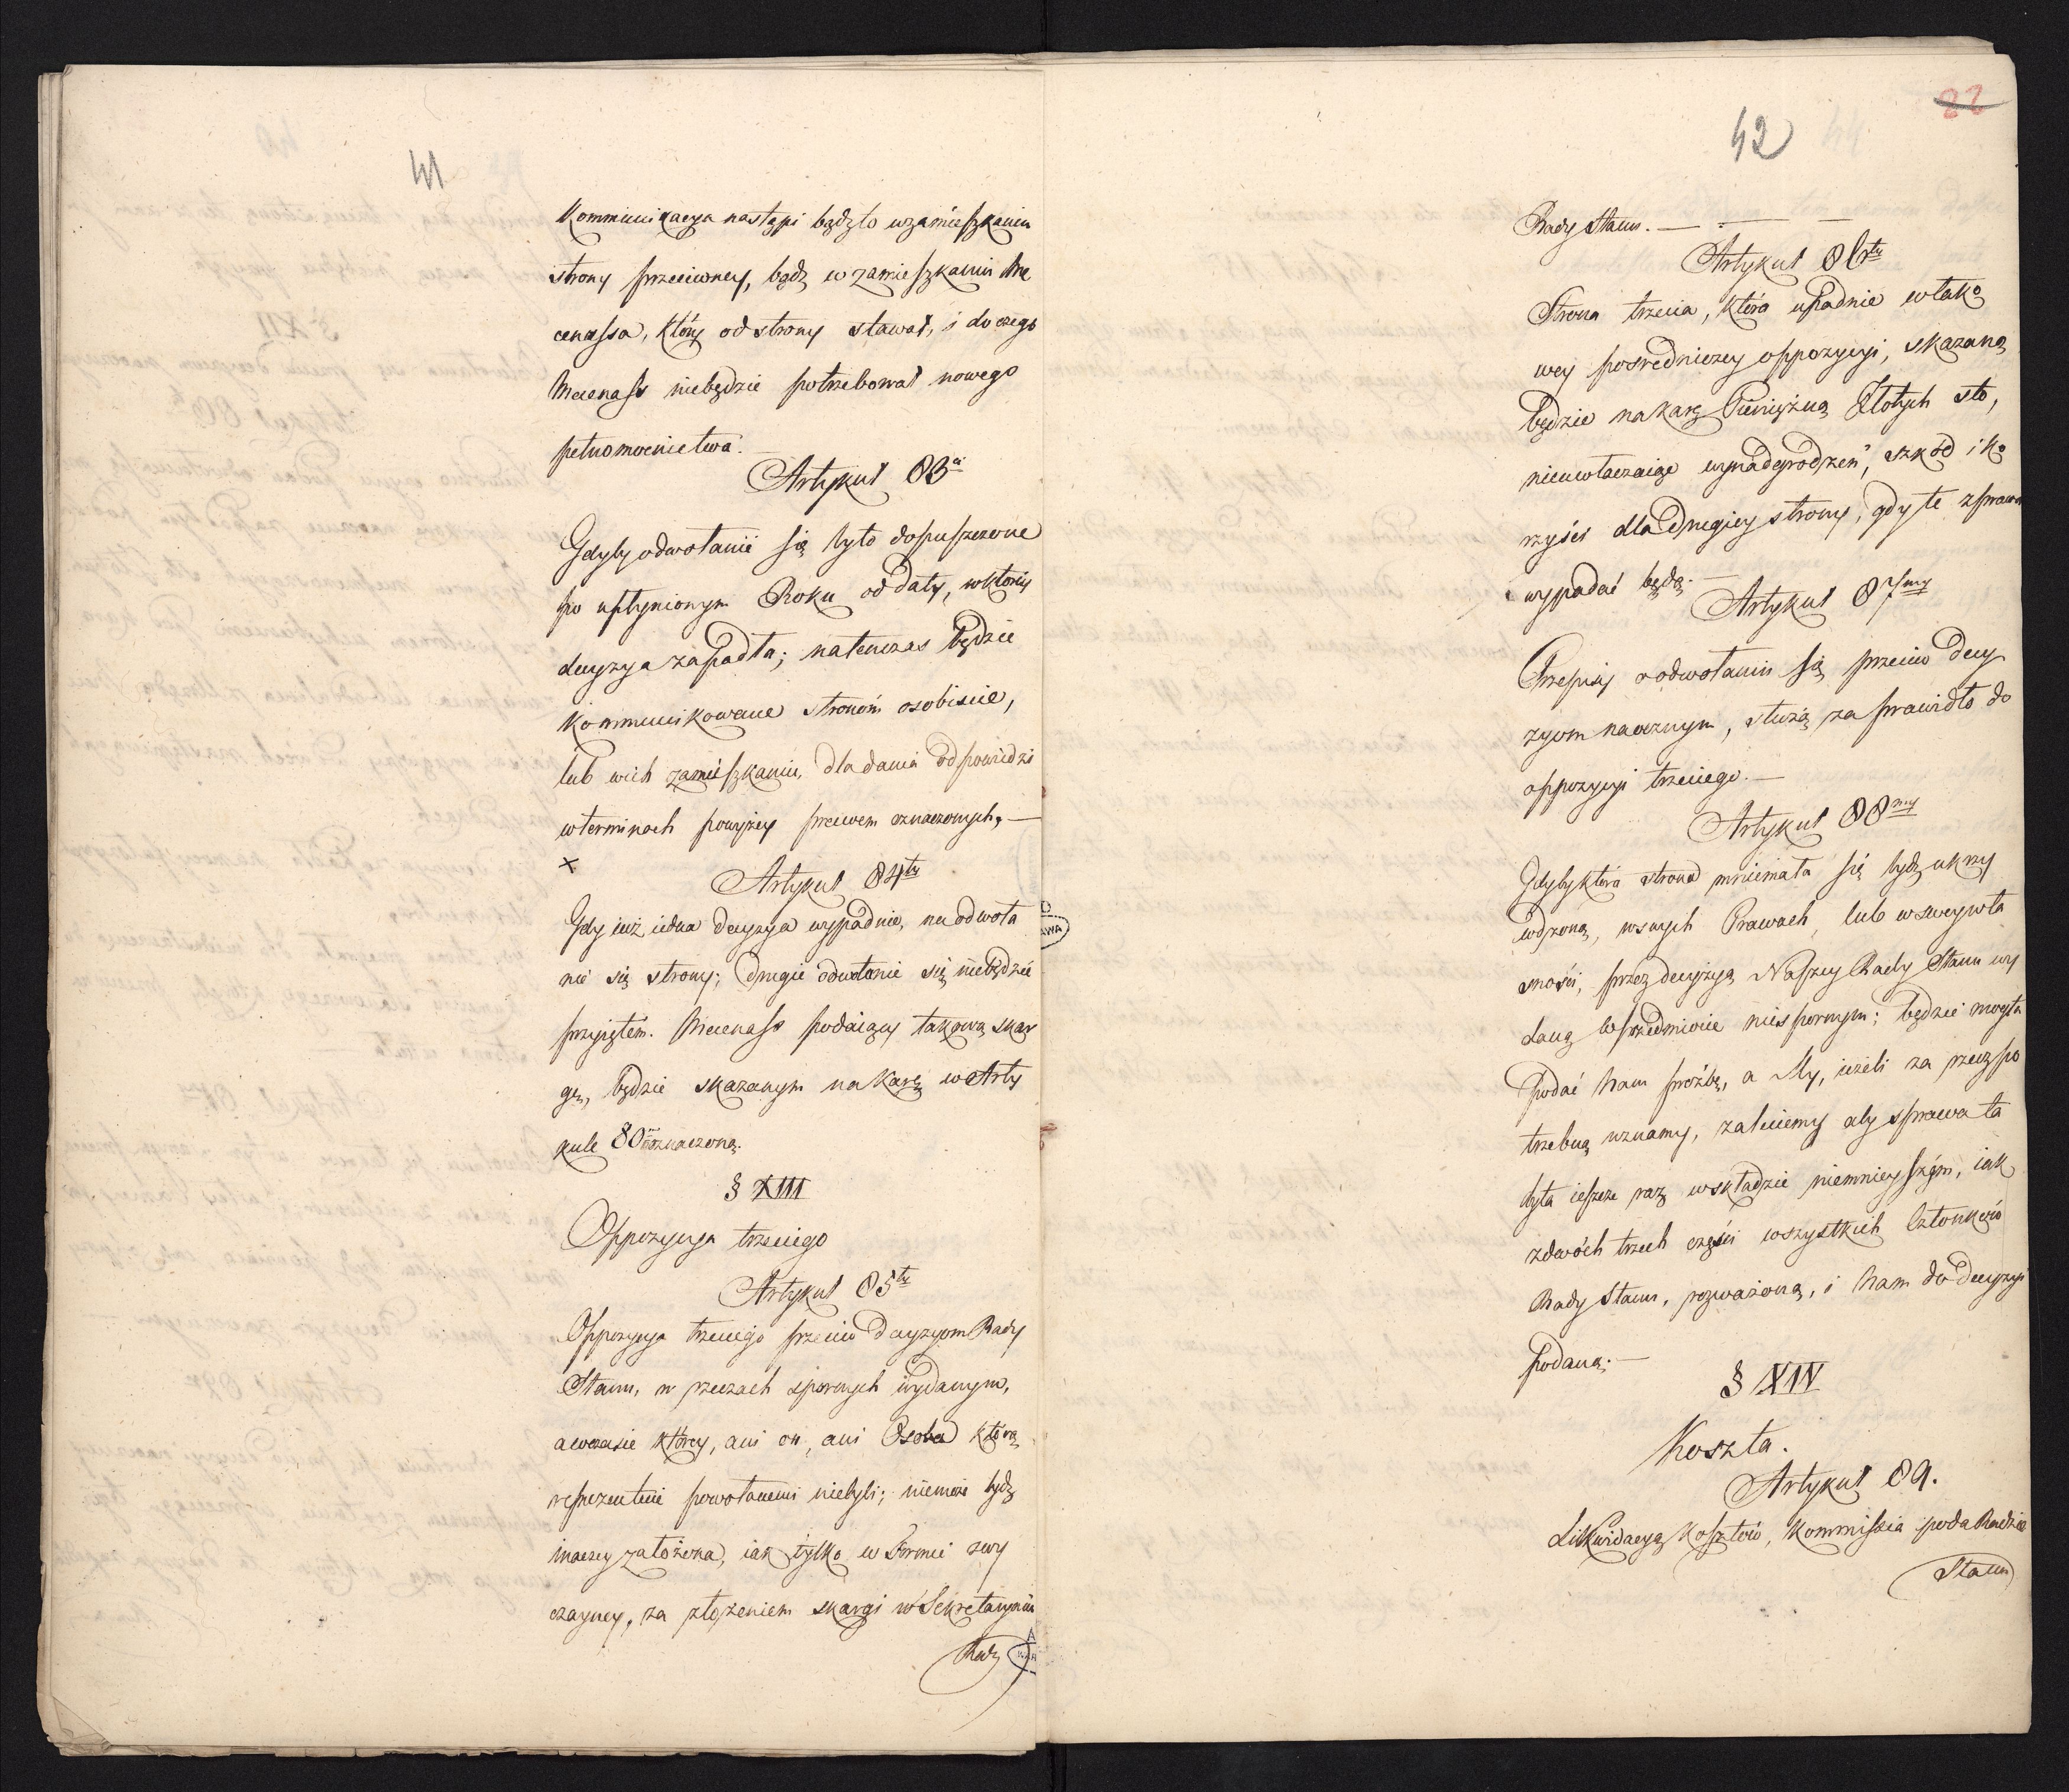 41
Kommunikacya nastąpi bądźto wzamieszkaniu
strony przeciwney, bądź w zamieszkaniu Me
cenassa, który od strony stawał, i do czego
Mecenass niebędzie potrzebował nowego
pełnomocnictwa.
Artykuł 83ci
Gdyby odwołanie się było dopuszczone
po upłynionym Roku od daty, wktórey
decyzya zapadła; natenczas będzie
kommunikowane stronóm osobiście,
lub wich zamieszkaniu, dla dania odpowiedzi
wterminach powyżey prawem oznaczonych. —
×
Artykuł 84ty
Gdy iuż iedna decyzya wypadnie, na odwoła
nie się strony; drugie odwołanie się niebędzie
przyiętém. Mecenass podaiący takową skar
gę, będzie skazanym na karę w Arty
kule 80m oznaczoną.
§ XIII
Oppozycya trzeciego
Artykuł 85ty
Oppozycya trzeciego przeciw decyzyom Rady
Stanu, w rzeczach spornych wydanym,
a wczasie którey, ani on, ani Osoba którą
reprezentuie powołanemi niebyli; niemoże bydź
inaczey założona, iak tylko w Formie zwy
czayney, za złożeniem skargi w Sekretaryacie
Rady
22
42
Rady Stanu. — —
Artykuł 86ty
Strona trzecia, która upadnie wtako
wey pośredniczey oppozycyi, skazaną
będzie na karę Pieniężną Złotych sto,
nieuwłaczaiąc wynadgrodzeń, szkód i ko
rzyści dla drugiey strony, gdy te zprawa
wypadać będą. —
Artykuł 87my
Przepisy o odwołaniu się przeciw decy
zyom naocznym, służą za prawidło do
oppozycyi trzeciego. —
Artykuł 88my
Gdyby która strona mniemała się bydź ukrzy
wdzoną, wswych Prawach, lub w swey wła
sności, przez decyzyą Naszey Rady Stanu wy
daną w przedmiocie niespornym; będzie mogła
podać Nam proźbę, a My, ieżeli za rzecz po
trzebną uznamy, zaleciemy aby sprawa ta
była ieszcze raz wskładzie niemnieyszém, iak
zdwóch trzech części wszystkich Członków
Rady Stanu, rozważoną, i Nam do decyzyi
podaną. —
§ XIV
Koszta.
Artykuł 89.
Likwidacyą kosztów, Kommissia poda Radzie
Stanu